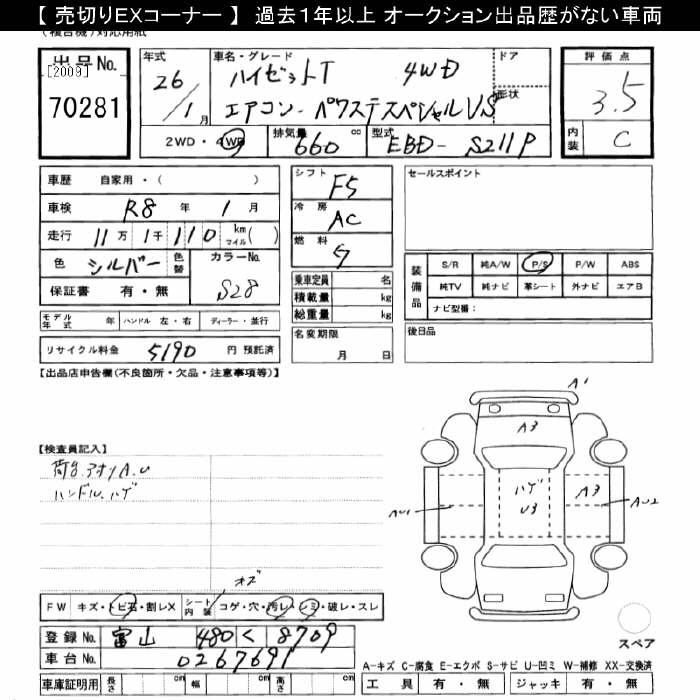 【 売切りEXコーナー 】 過去1年以上 オークション出品歴がない車両
(積合機)対応用紙
出品No.
[2009]
70281
年式 26/1月
車名・グレード ハイゼットT 4WD
エアコン-パワステスペシャルVS
ドア
形状
2WD・4WD
排気量 660 cc
型式 EBD- S211P
評価点 3.5
内装 C
車歴 自家用・( )
車検 R8 年 1 月
走行 11万 1千 110 km マイル( )
色 シルバー 色替 カラーNo. S28
保証書 有・無
モデル年式 年 ハンドル 左・右 ディーラー・並行
リサイクル料金 5190 円 預託済
シフト F5
冷房 AC
燃料 G
乗車定員 名
積載量 kg
総重量 kg
名変期限 月 日
セールスポイント
装備品 S/R 純A/W P/S P/W ABS
純TV 純ナビ 革シート 外ナビ エアB
ナビ型番:
後日品
【出品店申告欄(不良箇所・欠品・注意事項等)】
【検査員記入】
荷台.アオリA.U
ハンドル.ハゲ
A1
A3
ハゲ
U3
A3
AU1
AU2
FW キズ・トビ石・割レX シート内装 コゲ・穴・汚レ・シミ・破レ・スレ
登録No. 富山 480 く 8709
車台No. 0267691
車庫証明用 長さ cm 幅 cm 高さ cm
スペア
A-キズ C-腐食 E-エクボ S-サビ U-凹ミ W-補修 XX-交換済
工具 有・無 ジャッキ 有・無